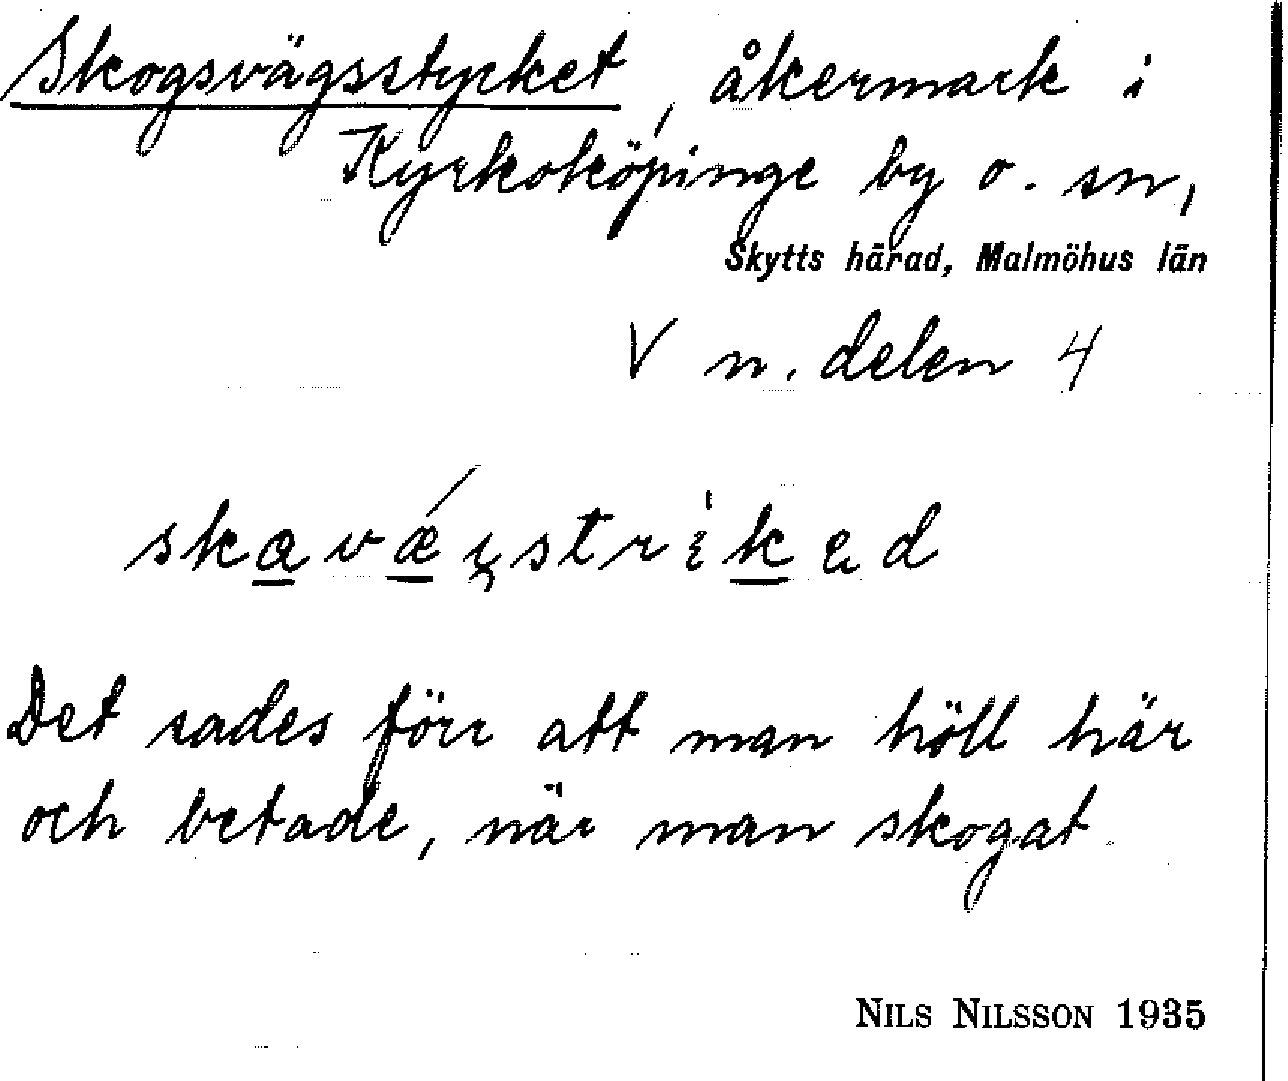 Skogsvägsstycket, åkermark i
Kyrkoköpinge by o. sn,
Skytts härad, Malmöhus län
V n. delen 4
Det sades förr att man höll här
och betade, när man skogat
NILS NILSSON 1935